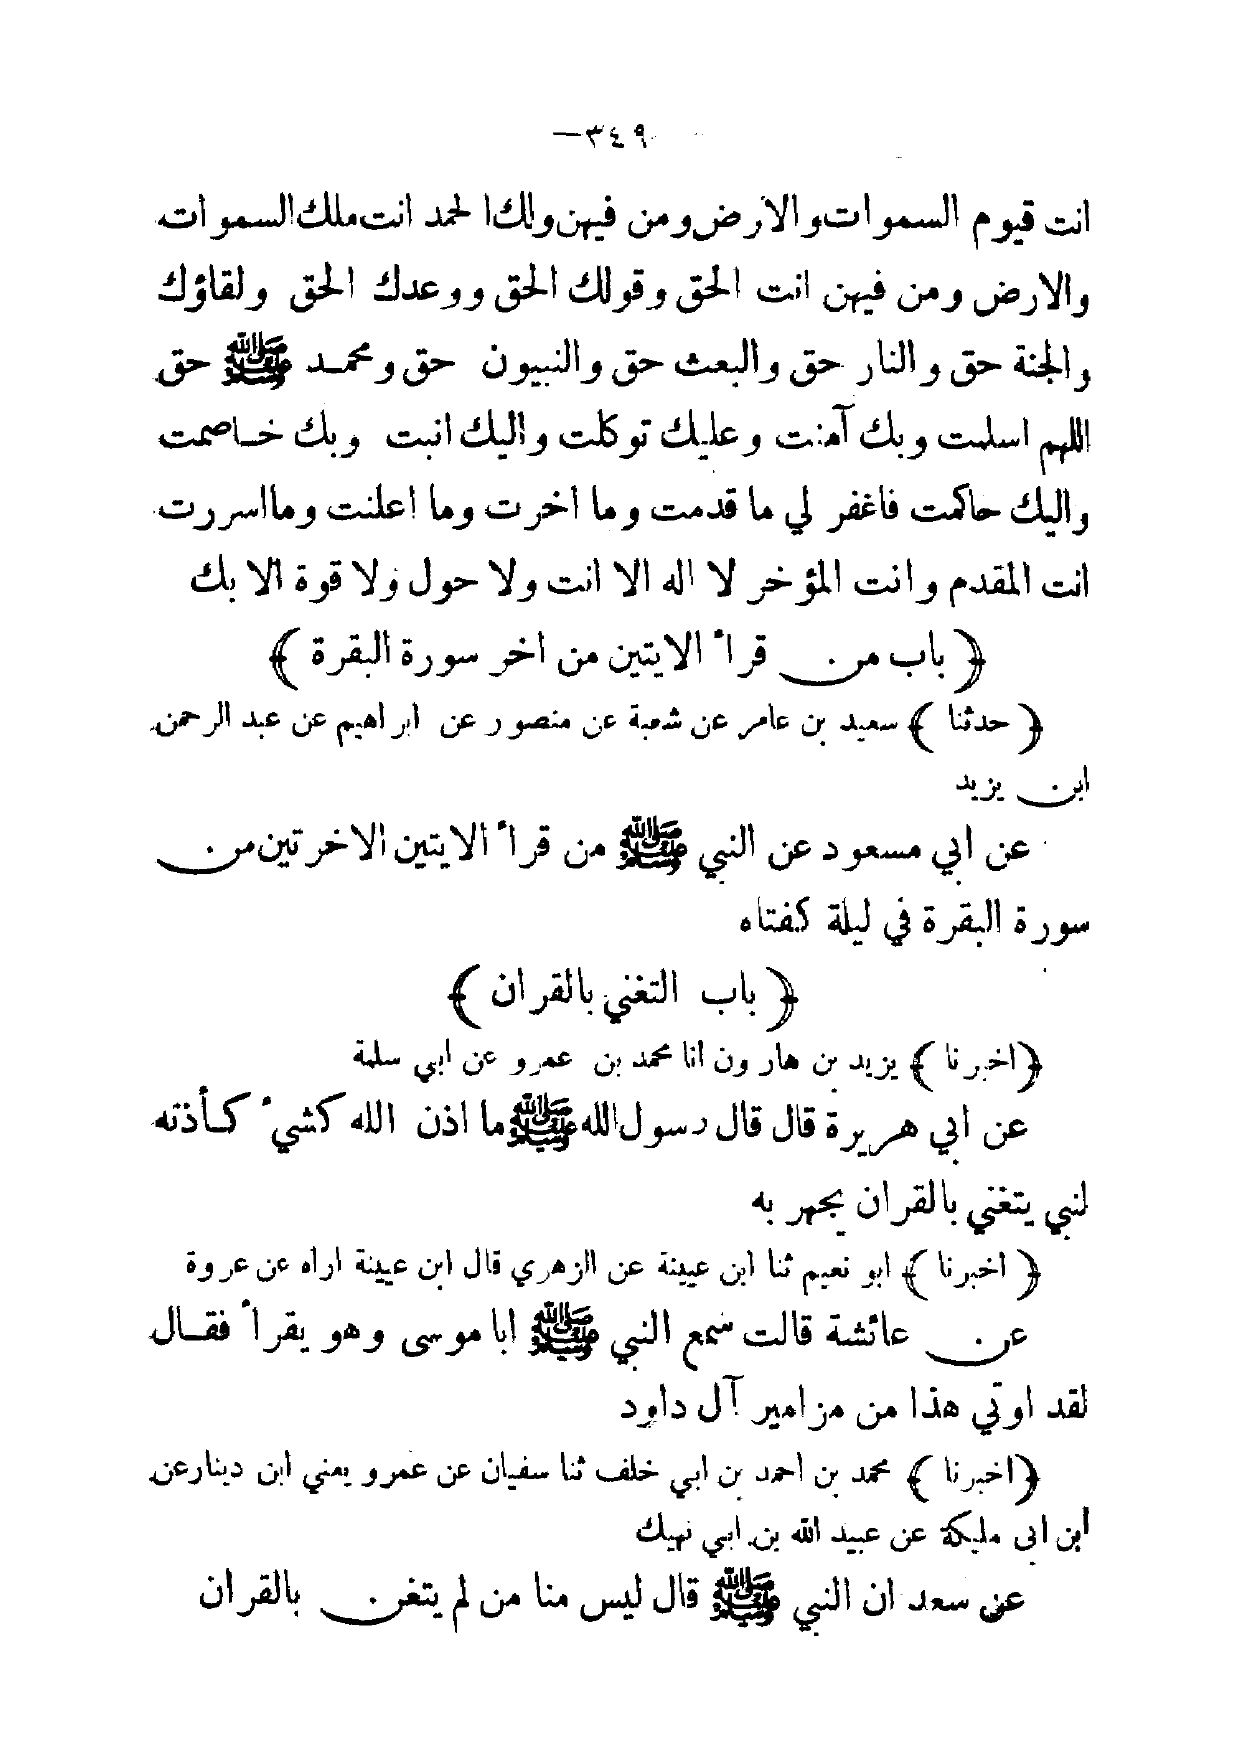 ٣٤٩—
انت قيوم السموات والارض ومن فيهن ولك الحمد انت ملك السموات
والارض ومن فيهن انت الحق وقولك الحق ووعدك الحق ولقاؤك
والجنة حق والنار حق والبعث حق والنبيون حق ومحمد ﷺ حق
اللهم اسلمت وبك آمنت وعليك توكلت واليك انبت وبك خاصمت
واليك حاكمت فاغفر لي ما قدمت وما اخرت وما اعلنت وما اسررت
انت المقدم وانت المؤخر لا اله الا انت ولا حول ولا قوة الا بك
﴿ باب من قرأ الايتين من اخر سورة البقرة ﴾
﴿ حدثنا ﴾ سعيد بن عامر عن شعبة عن منصور عن ابراهيم عن عبد الرحمن
ابن يزيد
عن ابي مسعود عن النبي ﷺ من قرأ الايتين الاخرتين من
سورة البقرة في ليلة كفتاه
﴿ باب التغني بالقران ﴾
﴿ اخبرنا ﴾ يزيد بن هارون انا محمد بن عمرو عن ابي سلمة
عن ابي هريرة قال قال رسول الله ﷺ ما اذن الله كشيء كأذنه
لنبي يتغني بالقران يجهر به
﴿ اخبرنا ﴾ ابو نعيم ثنا ابن عيينة عن الزهري قال ابن عيينة اراه عن عروة
عن عائشة قالت سمع النبي ﷺ ابا موسى وهو يقرأ فقال
لقد اوتي هذا من مزامير آل داود
﴿ اخبرنا ﴾ محمد بن احمد بن ابي خلف ثنا سفيان عن عمرو يعني ابن دينار عن
ابن ابى مليكة عن عبيد الله بن ابي نهيك
عن سعد ان النبي ﷺ قال ليس منا من لم يتغن بالقران